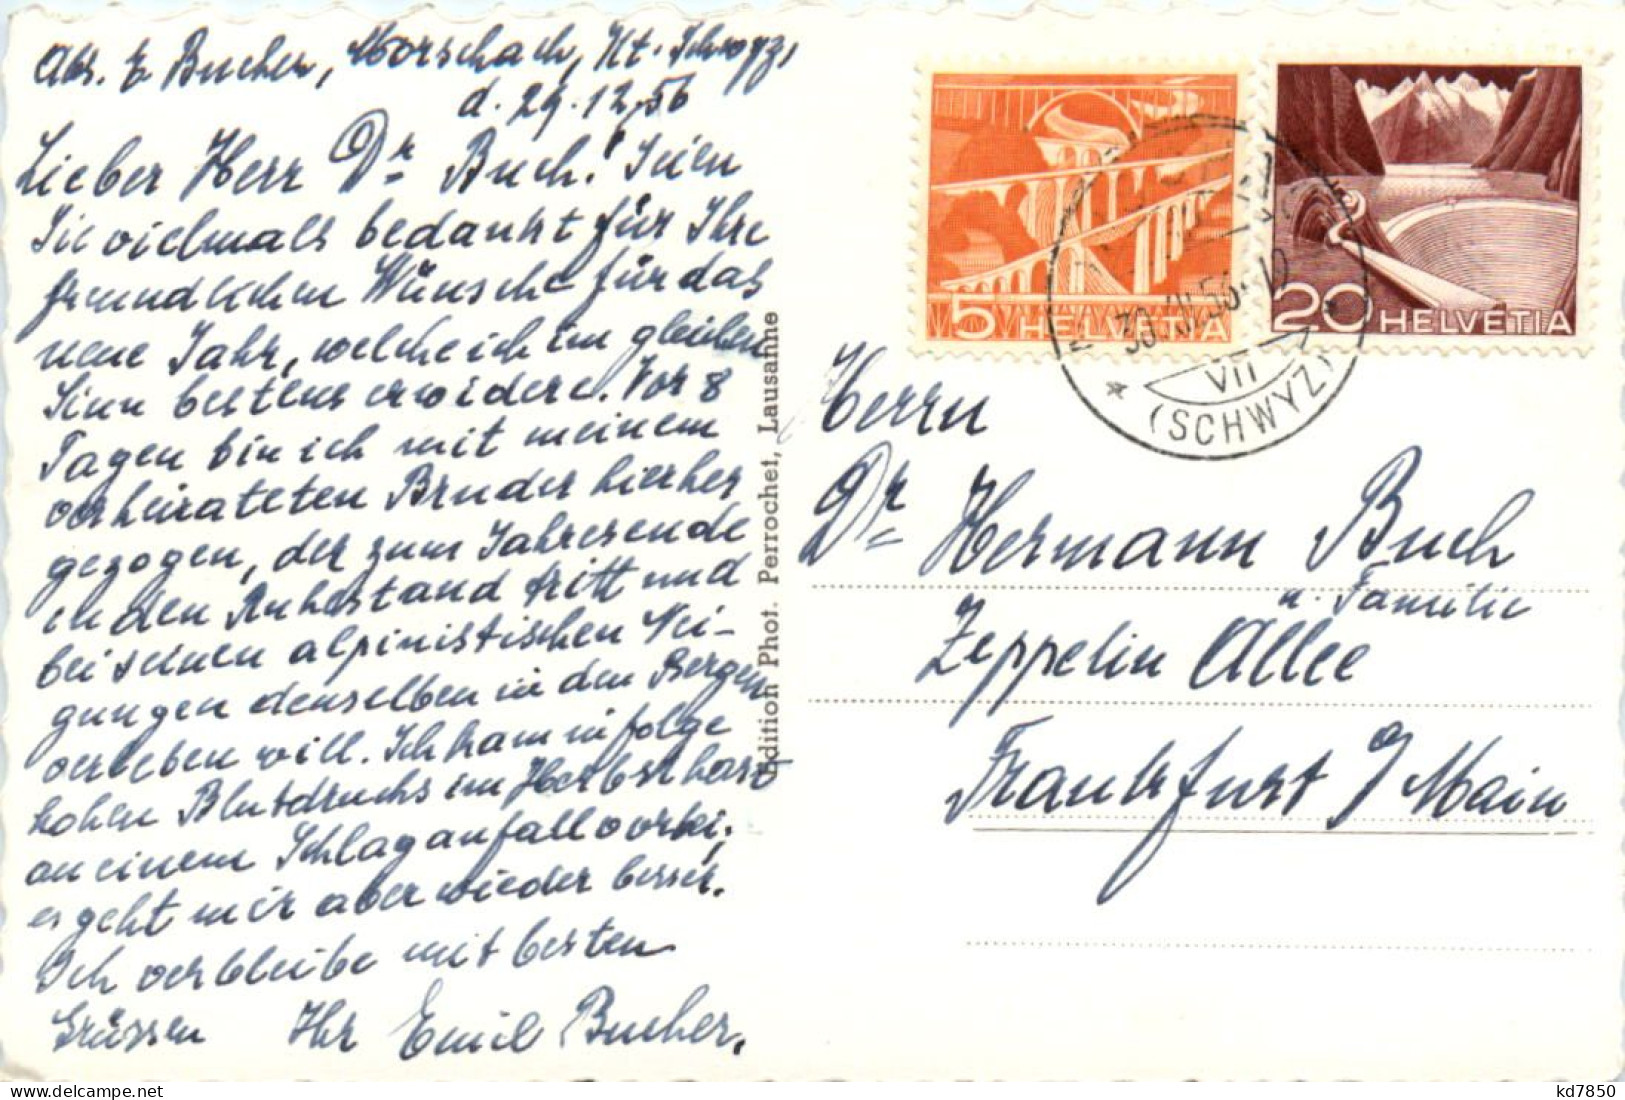 Abs. E Bucher, Morschach, Kt. Schwyz,
d. 29.12.56
Lieber Herr Dr. Buch! Seien
Sie vielmals bedankt für Ihre
freundlichen Wünsche für das
neue Jahr, welche ich im gleichen
Sinn bestens erwidere. Vor 8
Tagen bin ich mit meinem
verheirateten Bruder hierher
gezogen, der zum Jahresende
in den Ruhestand tritt und
bei seinen alpinistischen Nei-
gungen denselben in den Bergen
verleben will. Ich kam infolge
hohen Blutdrucks im Herbst hart
an einem Schlaganfall vorbei;
es geht mir aber wieder besser.
Ich verbleibe mit besten
Grüssen Ihr Emil Bucher.
Edition Phot. Perrochet, Lausanne
5 HELVETIA
20 HELVETIA
30.XII.56-10
VII
(SCHWYZ)
Herrn
Dr Hermann Buch
u. Familie
Zeppelin Allee
Frankfurt / Main
kd7850